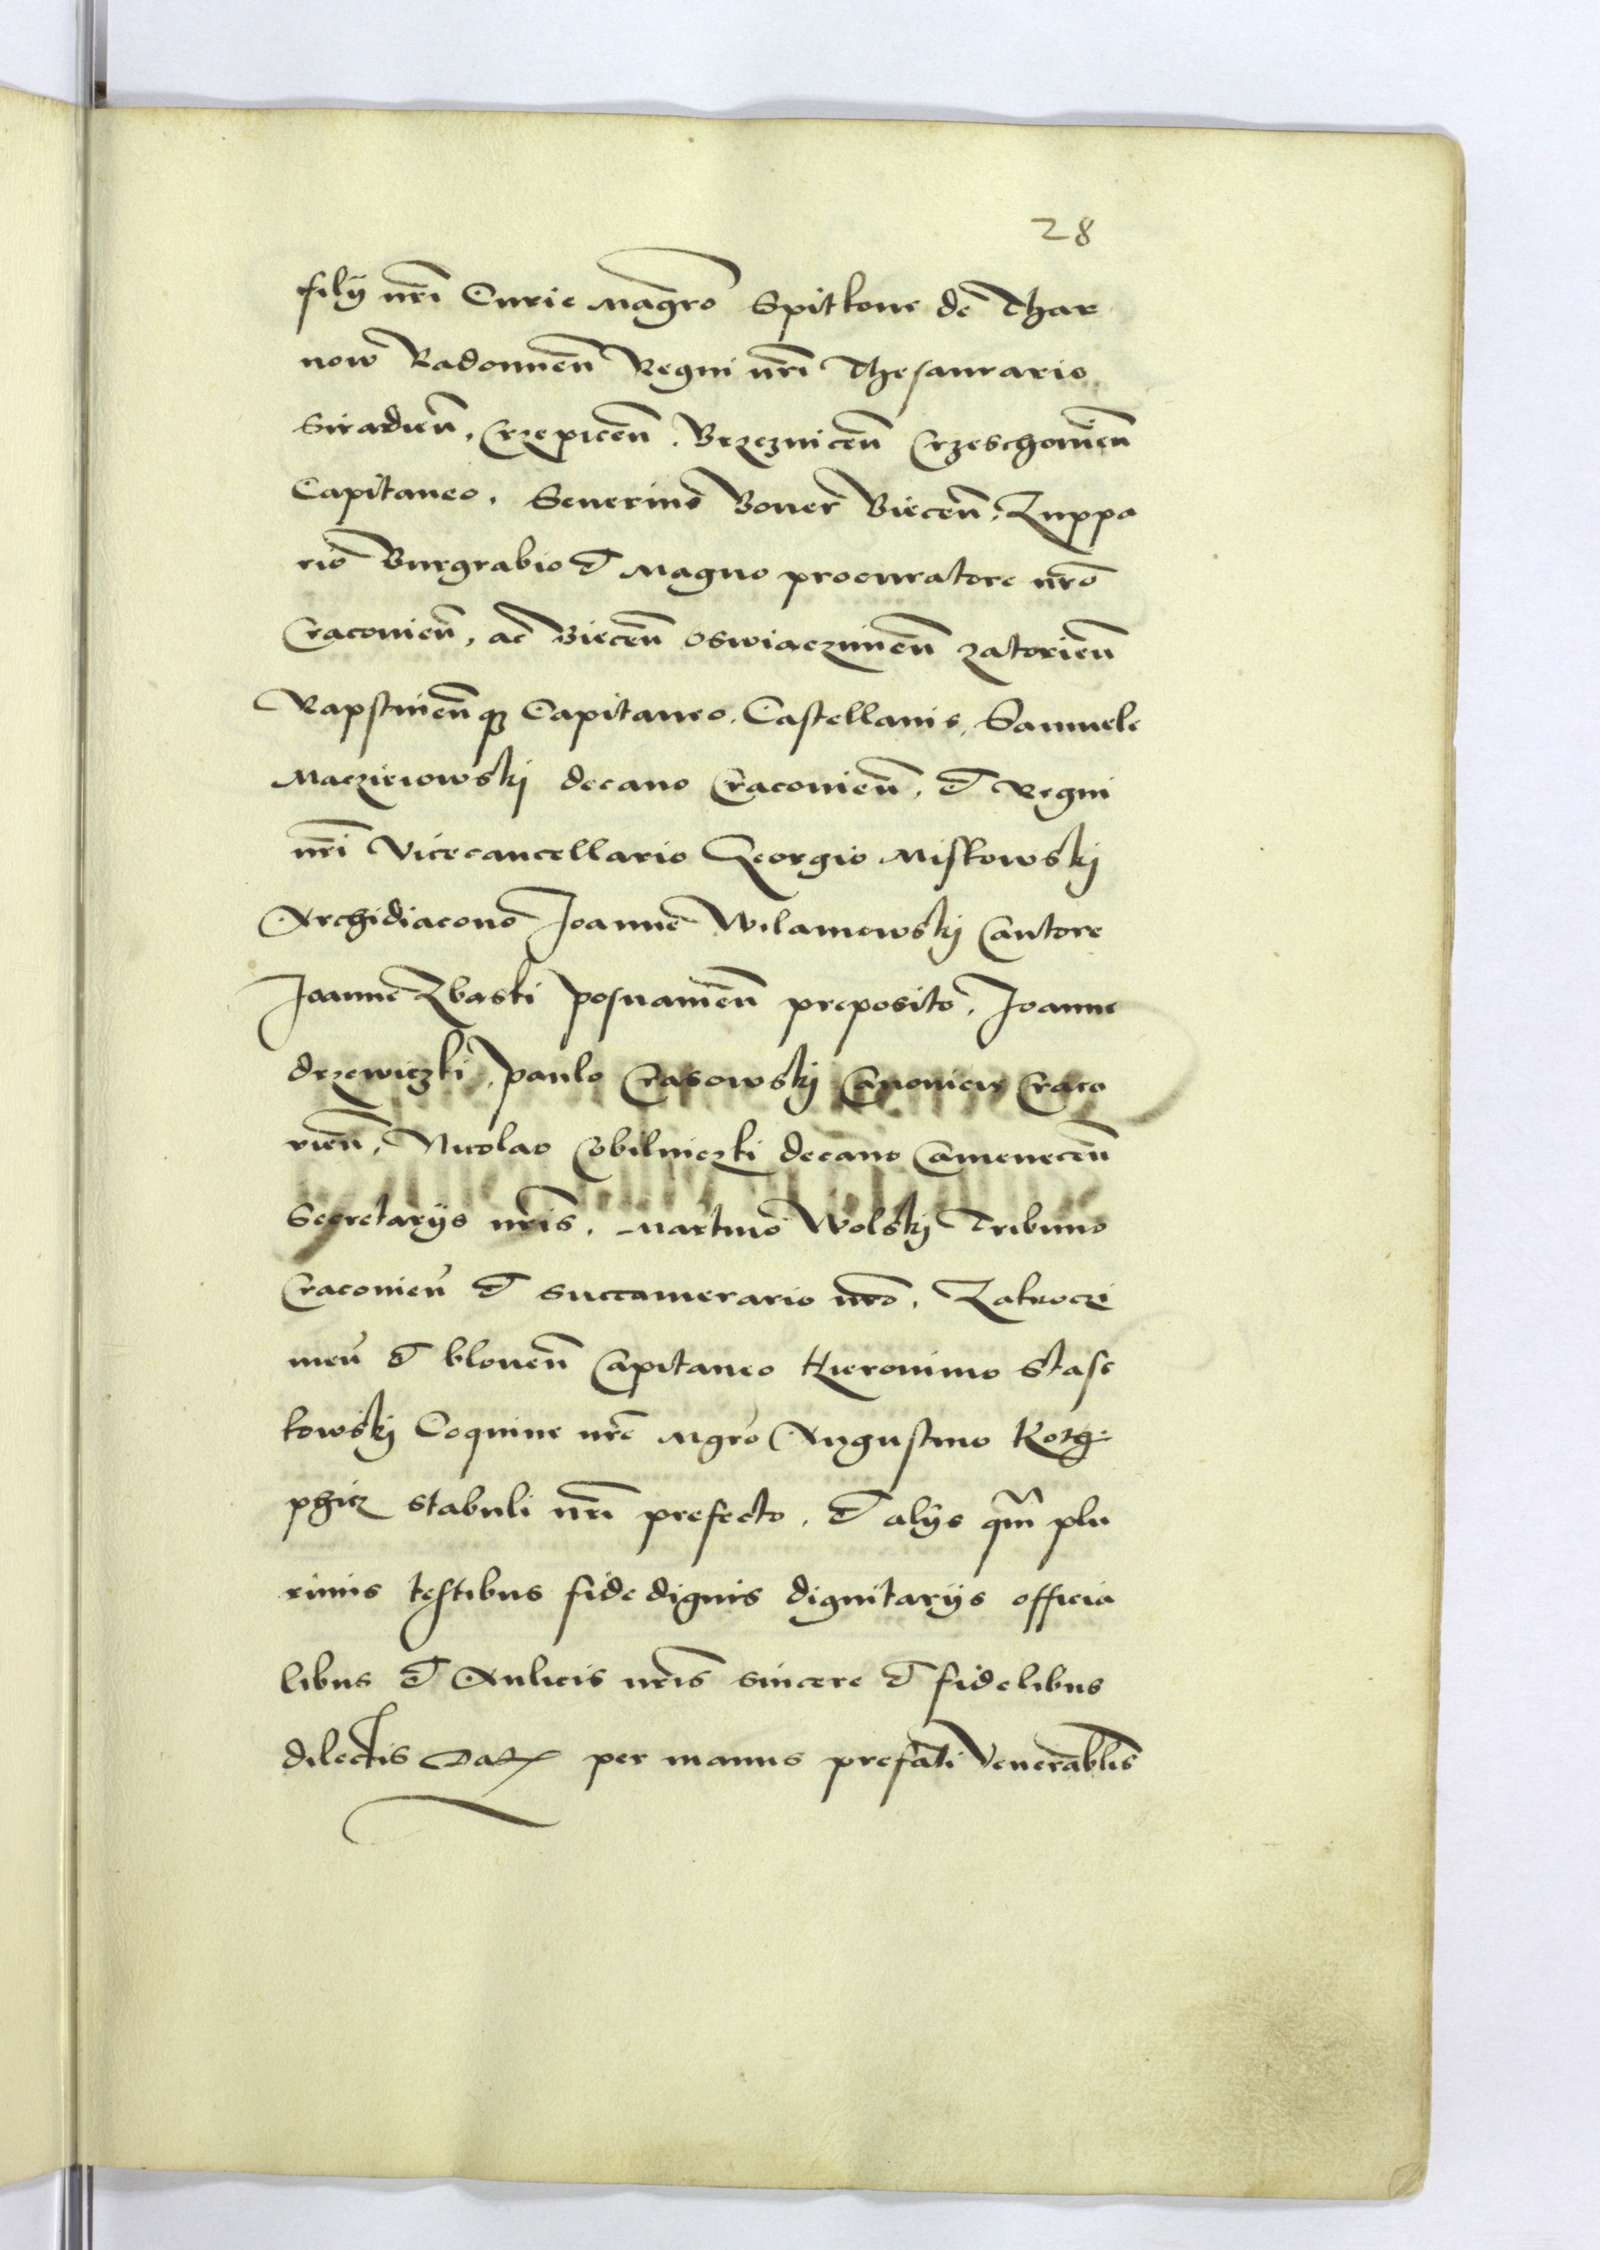 28
filÿ nr̄i Curie Magr̄o Spitkone de Thar
now Radomien̄ Regni nr̄i Thesaurario
Siradien̄, Crzepicen̄. Brzeznicen̄ Crzeschowien̄
Capitaneo. Seuerino Boner Biecen̄, Zuppa
rio Burgrabio et Magno procuratore nr̄o
Cracovien̄, ac Biecen̄ Oswiaczimen̄ Zatorien̄
Rapstinen̄qȝ Capitaneo. Castellanis, Samuele
Macziejowskj decano Cracovien̄, et Regni
nr̄i Vicecancellario Georgio Miskowskj
Archidiacono Joanne Wilamowskj Cantore
Joanne Zbaski posnanien̄ preposito, Joanne
drzewiczki, paulo Crasowskj Canonicis Craco
vien̄, Nicolao Cobilniczki decano Camenecen̄
Secretarÿs nr̄is. Martino Wolskj Tribuno
Cracovien̄ et succamerario nr̄o, Zakroczi
men̄ et blonen̄ Capitaneo Hieronimo Stasc
kowskj Coquine nr̄e Mgr̄o Augustino Kotg:
phicz stabuli nr̄i prefecto, et alÿs qm̄ plu
rimis testibus fide dignis dignitarÿs officia
libus et Aulicis nr̄is sincere et fidelibus
dilectis Dat per manus prefati Venerablis̄